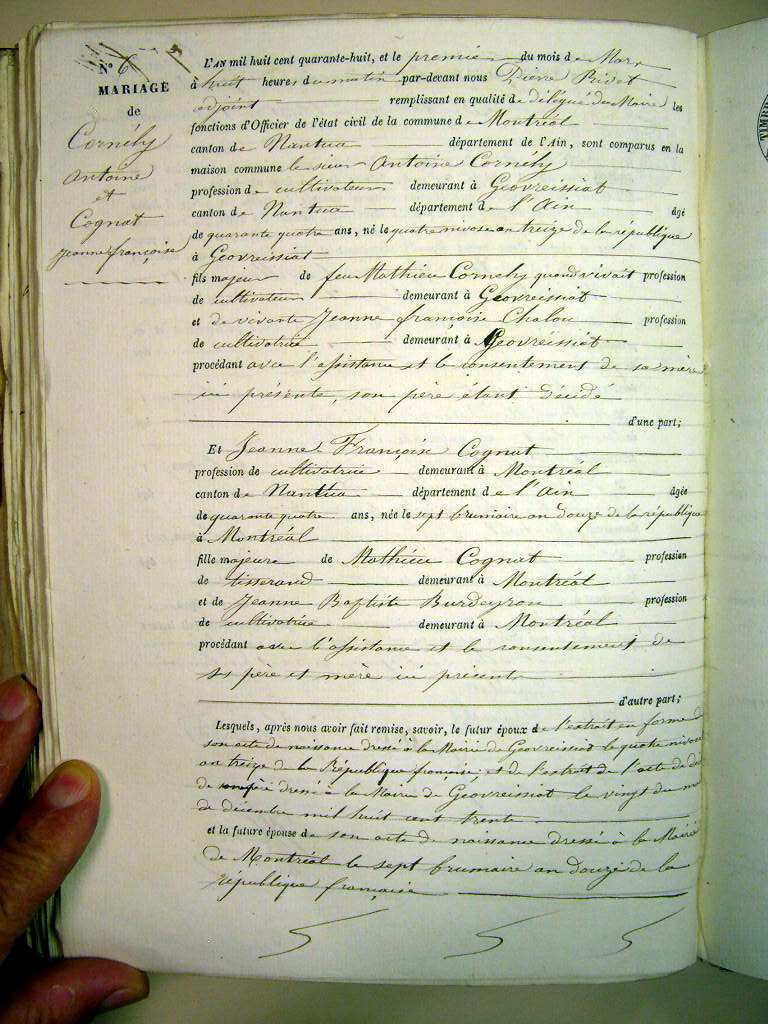 N° 6
MARIAGE
de
Cornély
Antoine
et
Cognat
Jeanne françoise
L'AN mil huit cent quarante-huit, et le premier du mois de Mars
à huit heures du matin par-devant nous Pierre
adjoint remplissant en qualité de délégué du Maire les
fonctions d'Officier de l'état civil de la commune de Montréal
canton de Nantua département de l'Ain, sont comparus en la
maison commune le sieur Antoine Cornély
profession de cultivateur demeurant à Geovreissiat
canton de Nantua département de l'Ain âgé
de quarante quatre ans, né le quatre nivose an treize de la république
à Geovreissiat
fils majeur de feu Mathieu Cornély quand vivait profession
de cultivateur demeurant à Geovreissiat
et de vivante Jeanne françoise Chalon profession
de cultivatrice demeurant à Geovreissiat
procédant avec l'assistance et le consentement de sa mère
ici présente, son père étant décédé
d'une part;
Et Jeanne Françoise Cognat
profession de cultivatrice demeurant à Montréal
canton de Nantua département de l'Ain âgée
de quarante quatre ans, née le sept brumaire an douze de la république
à Montréal
fille majeure de Mathieu Cognat profession
de tisserand demeurant à Montréal
et de Jeanne Baptiste Burdeyron profession
de cultivatrice demeurant à Montréal
procédant avec l'assistance et le consentement de
ses père et mère ici présents
d'autre part;
Lesquels, après nous avoir fait remise, savoir, le futur époux de l'extrait en forme de
son acte de naissance dressé à la Mairie de Geovreissiat le quatre nivose
an treize de la République française, et de l'extrait de l'acte de
de son père dressé à la Mairie de Geovreissiat le vingt du mois
de décembre mil huit cent trente
et la future épouse de son acte de naissance dressé à la Mairie
de Montréal le sept brumaire an douze de la
république française
TIMBRE